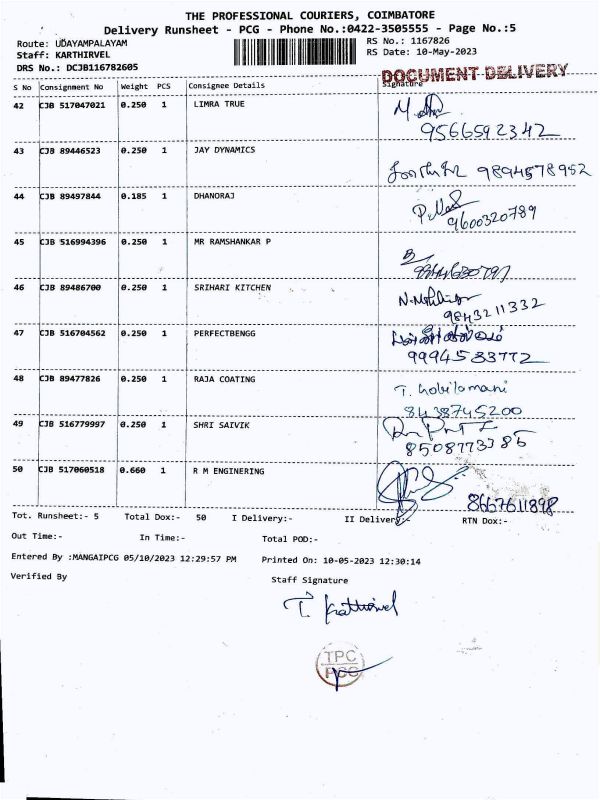 THE PROFESSIONAL COURIERS, COIMBATORE
Delivery Runsheet - PCG - Phone No.:0422-3505555 - Page No.:5
Route: UDAYAMPALAYAM RS No.: 1167826
Staff: KARTHIRVEL RS Date: 10-May-2023
DRS No.: DCJB116782605
DOCUMENT DELIVERY
S No Consignment No Weight PCS Consignee Details Signature
42 CJB 517047021 0.250 1 LIMRA TRUE
9566592342
43 CJB 89446523 0.250 1 JAY DYNAMICS
9894578952
44 CJB 89497844 0.185 1 DHANORAJ
9600320789
45 CJB 516994396 0.250 1 MR RAMSHANKAR P
46 CJB 89486700 0.250 1 SRIHARI KITCHEN
9843211332
47 CJB 516704562 0.250 1 PERFECTBENGG
9994583772
48 CJB 89477826 0.250 1 RAJA COATING
T.
8438745200
49 CJB 516779997 0.250 1 SHRI SAIVIK
8508773785
50 CJB 517060518 0.660 1 R M ENGINERING
8667611898
Tot. Runsheet:- 5 Total Dox:- 50 I Delivery:- II Delivery:- RTN Dox:-
Out Time:- In Time:- Total POD:-
Entered By :MANGAIPCG 05/10/2023 12:29:57 PM Printed On: 10-05-2023 12:30:14
Verified By Staff Signature
TPC
PCG